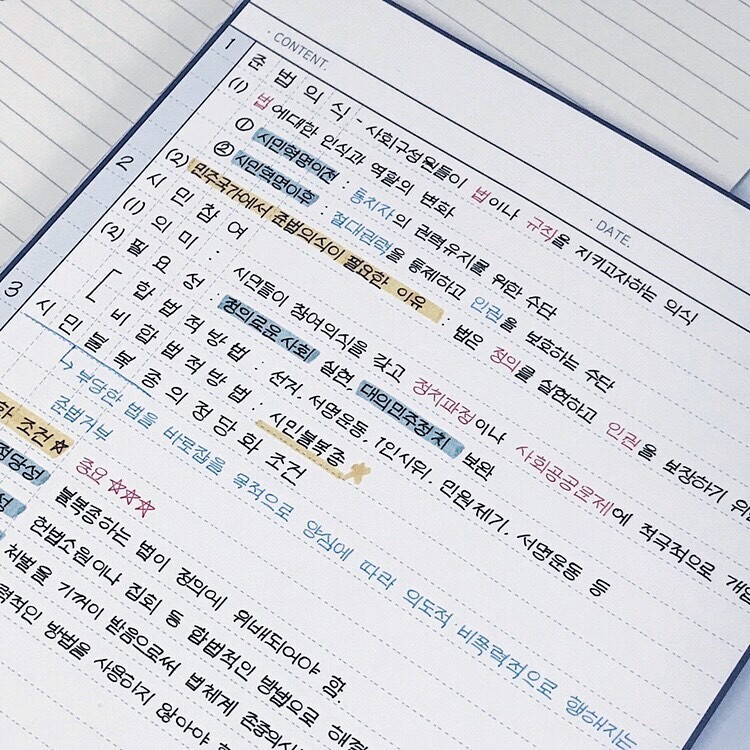 · CONTENT.
· DATE.
1 준 법 의 식 - 사회구성원들이 법이나 규칙을 지키고자하는 의식
(1) 법에대한 인식과 역할의 변화
① 시민혁명이전 : 통치자의 권력유지를 위한 수단
② 시민혁명이후 : 절대권력을 통제하고 인권을 보호하는 수단
(2) 민주국가에서 준법의식이 필요한 이유 : 법은 정의를 실현하고 인권을 보장하기
2 시 민 참 여
(1) 의 미 : 시민들이 참여의식을 갖고 정치과정이나 사회공공문제에 적극적으로
(2) 필 요 성 : 정의로운 사회 실현 대의민주정치 보완
합 법 적 방 법 : 선거, 서명운동, 1인시위, 민원제기, 서명운동 등
비 합 법 적 방 법 : 시민불복종
3 시 민 불 복 종 의 정 당 화 조 건
↳ 부당한 법을 바로잡을 목적으로 양심에 따라 의도적 비폭력적으로 행해지는
준법거부
조건☆ 중요 ☆☆☆
정당성 불복종하는 법이 정의에 위배되어야 함.
헌법소원이나 집회 등 합법적인 방법으로
처벌을 기꺼이 받음으로써 법체계
방법을 사용하지 않아야